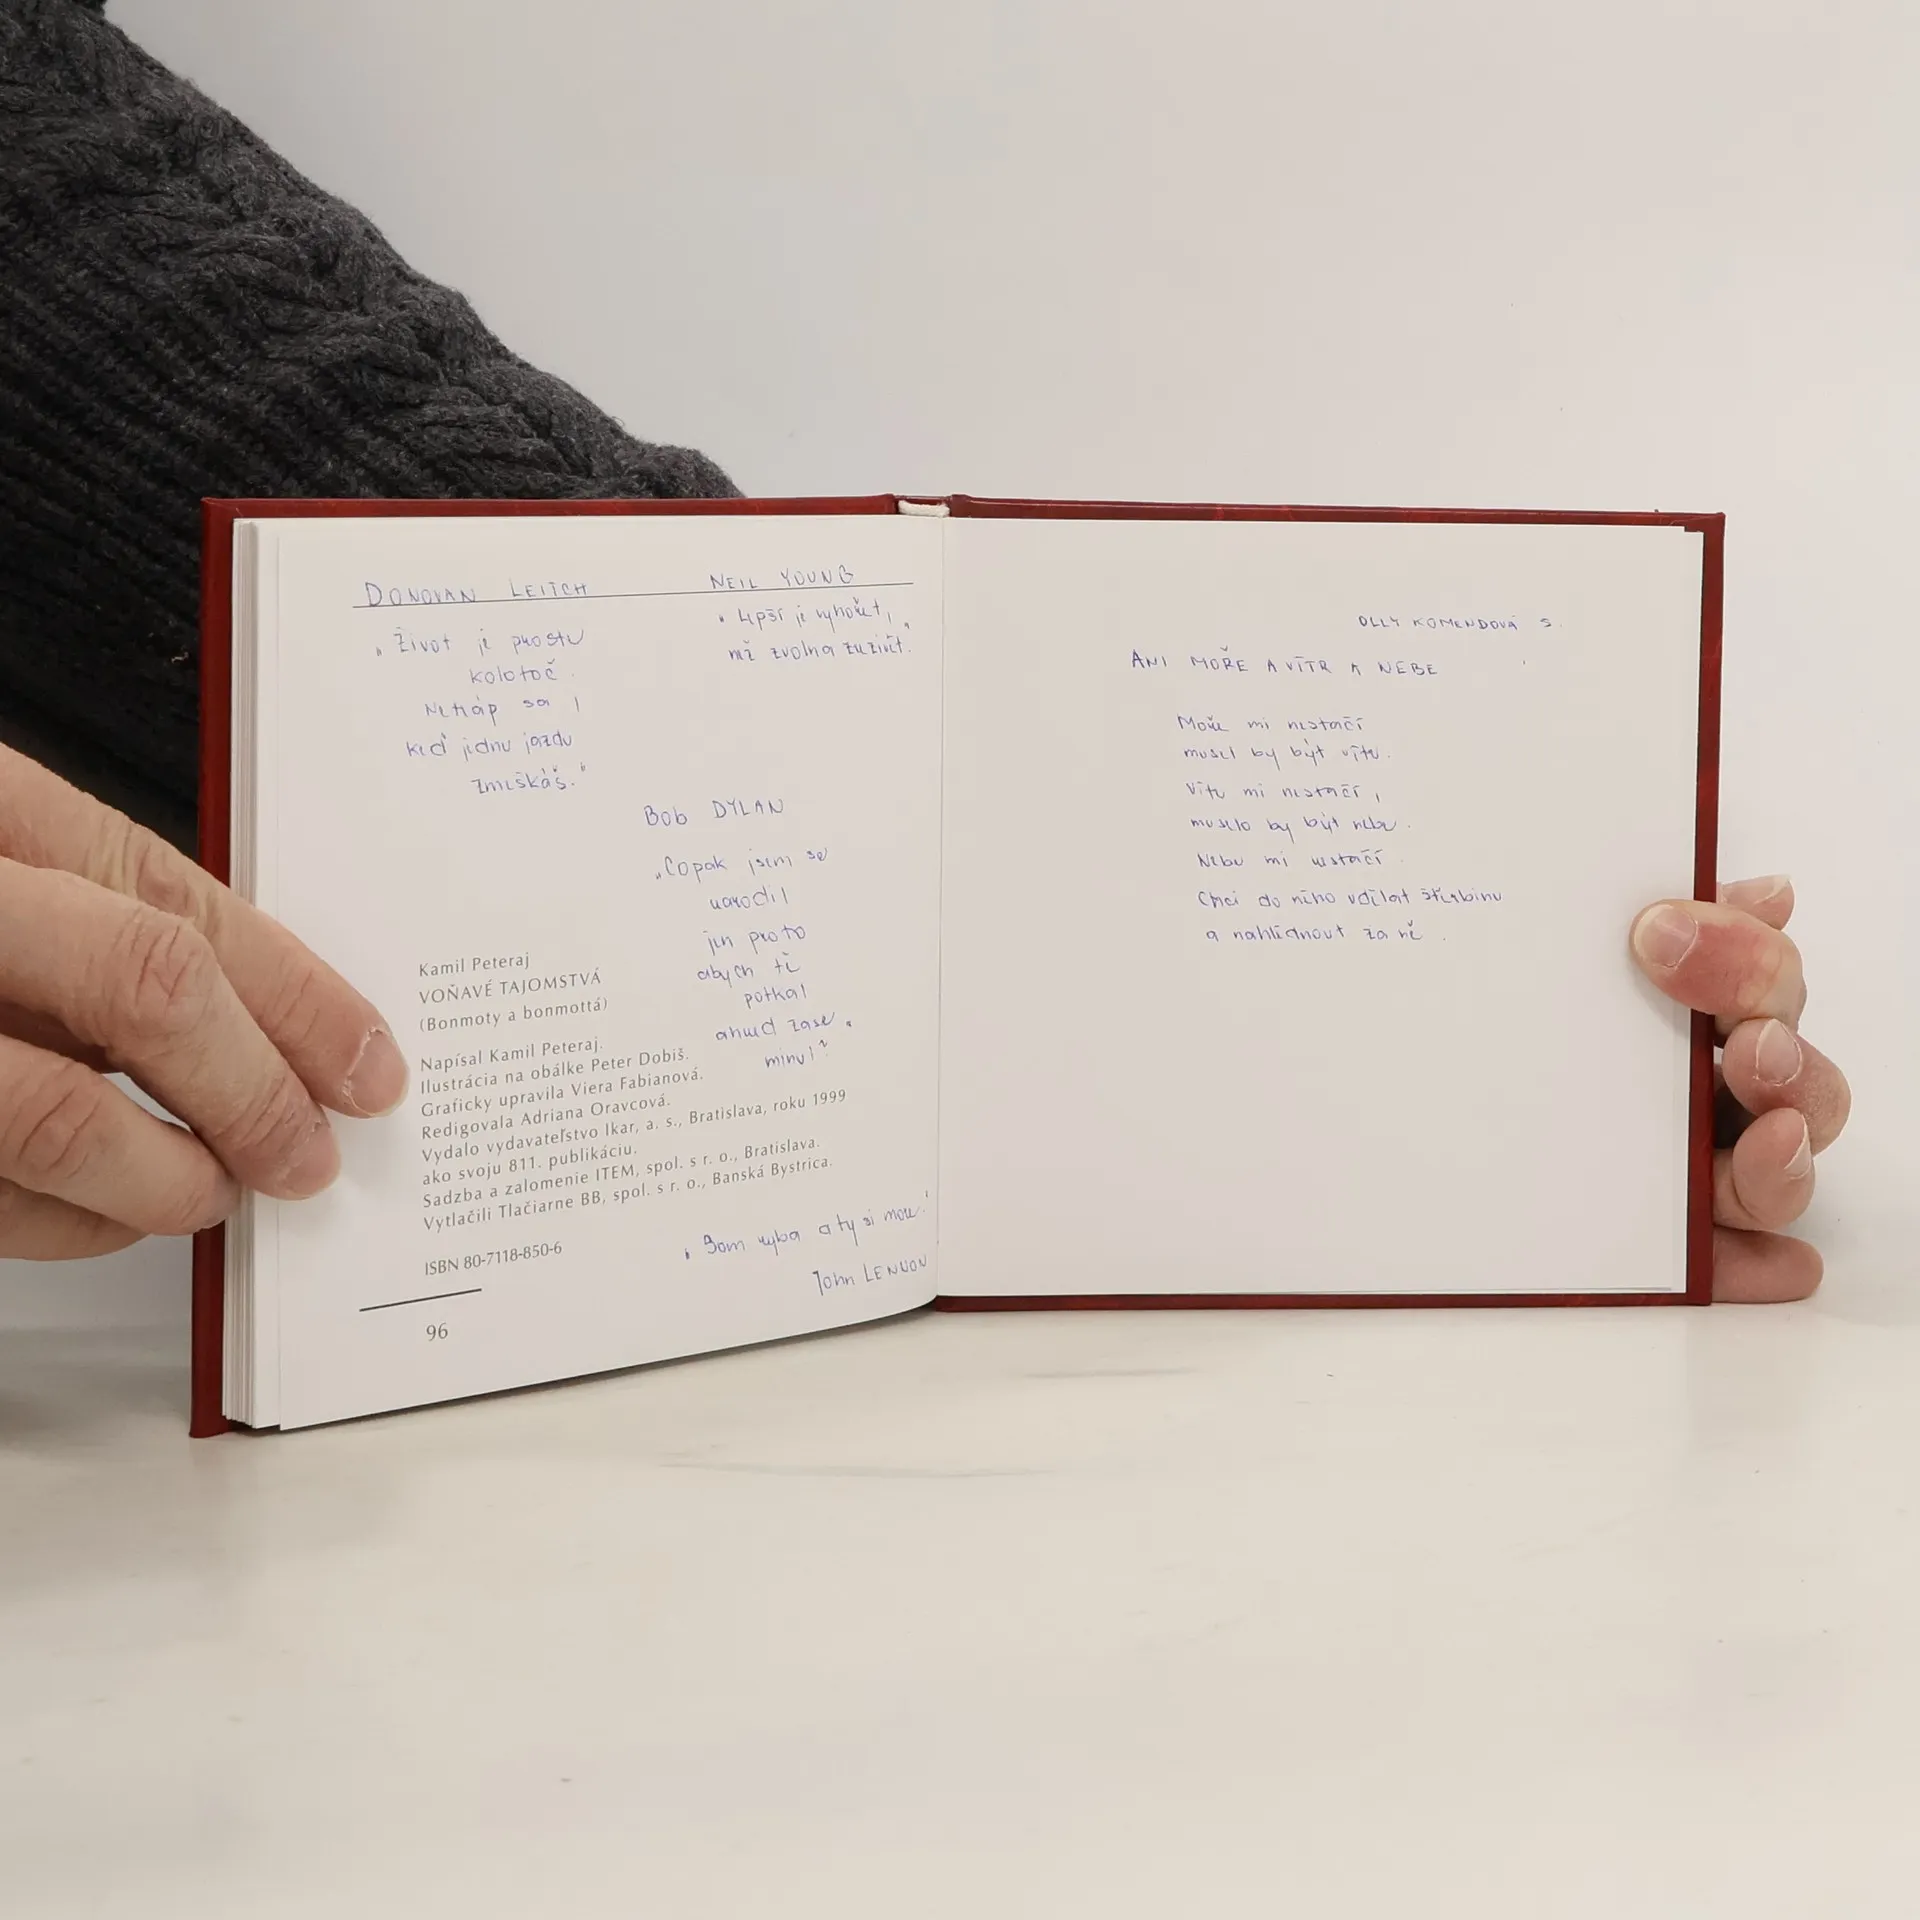 DONOVAN LEITCH
„Život je prostu
kolotoč.
Netráp sa,
keď jednu jazdu
zmeškáš."
NEIL YOUNG
"Lepší je vyhořet,
než zvolna zrezivět."
BOB DYLAN
„Copak jsem se
narodil
jen proto
abych tě
potkal
a hned zase
minul?"
Kamil Peteraj
VOŇAVÉ TAJOMSTVÁ
(Bonmoty a bonmottá)
Napísal Kamil Peteraj.
Ilustrácia na obálke Peter Dobiš.
Graficky upravila Viera Fabianová.
Redigovala Adriana Oravcová.
Vydalo vydavateľstvo Ikar, a. s., Bratislava, roku 1999
ako svoju 811. publikáciu.
Sadzba a zalomenie ITEM, spol. s r. o., Bratislava.
Vytlačili Tlačiarne BB, spol. s r. o., Banská Bystrica.
ISBN 80-7118-850-6
"Som ryba a ty si more."
John LENNON
96
OLLY KOMENDOVÁ S.
ANI MOŘE A VÍTR A NEBE
Moře mi nestačí
musel by být vítr.
Vítr mi nestačí,
muselo by být nebe.
Nebe mi nestačí.
Chci do něho udělat štěrbinu
a nahlédnout za ně.